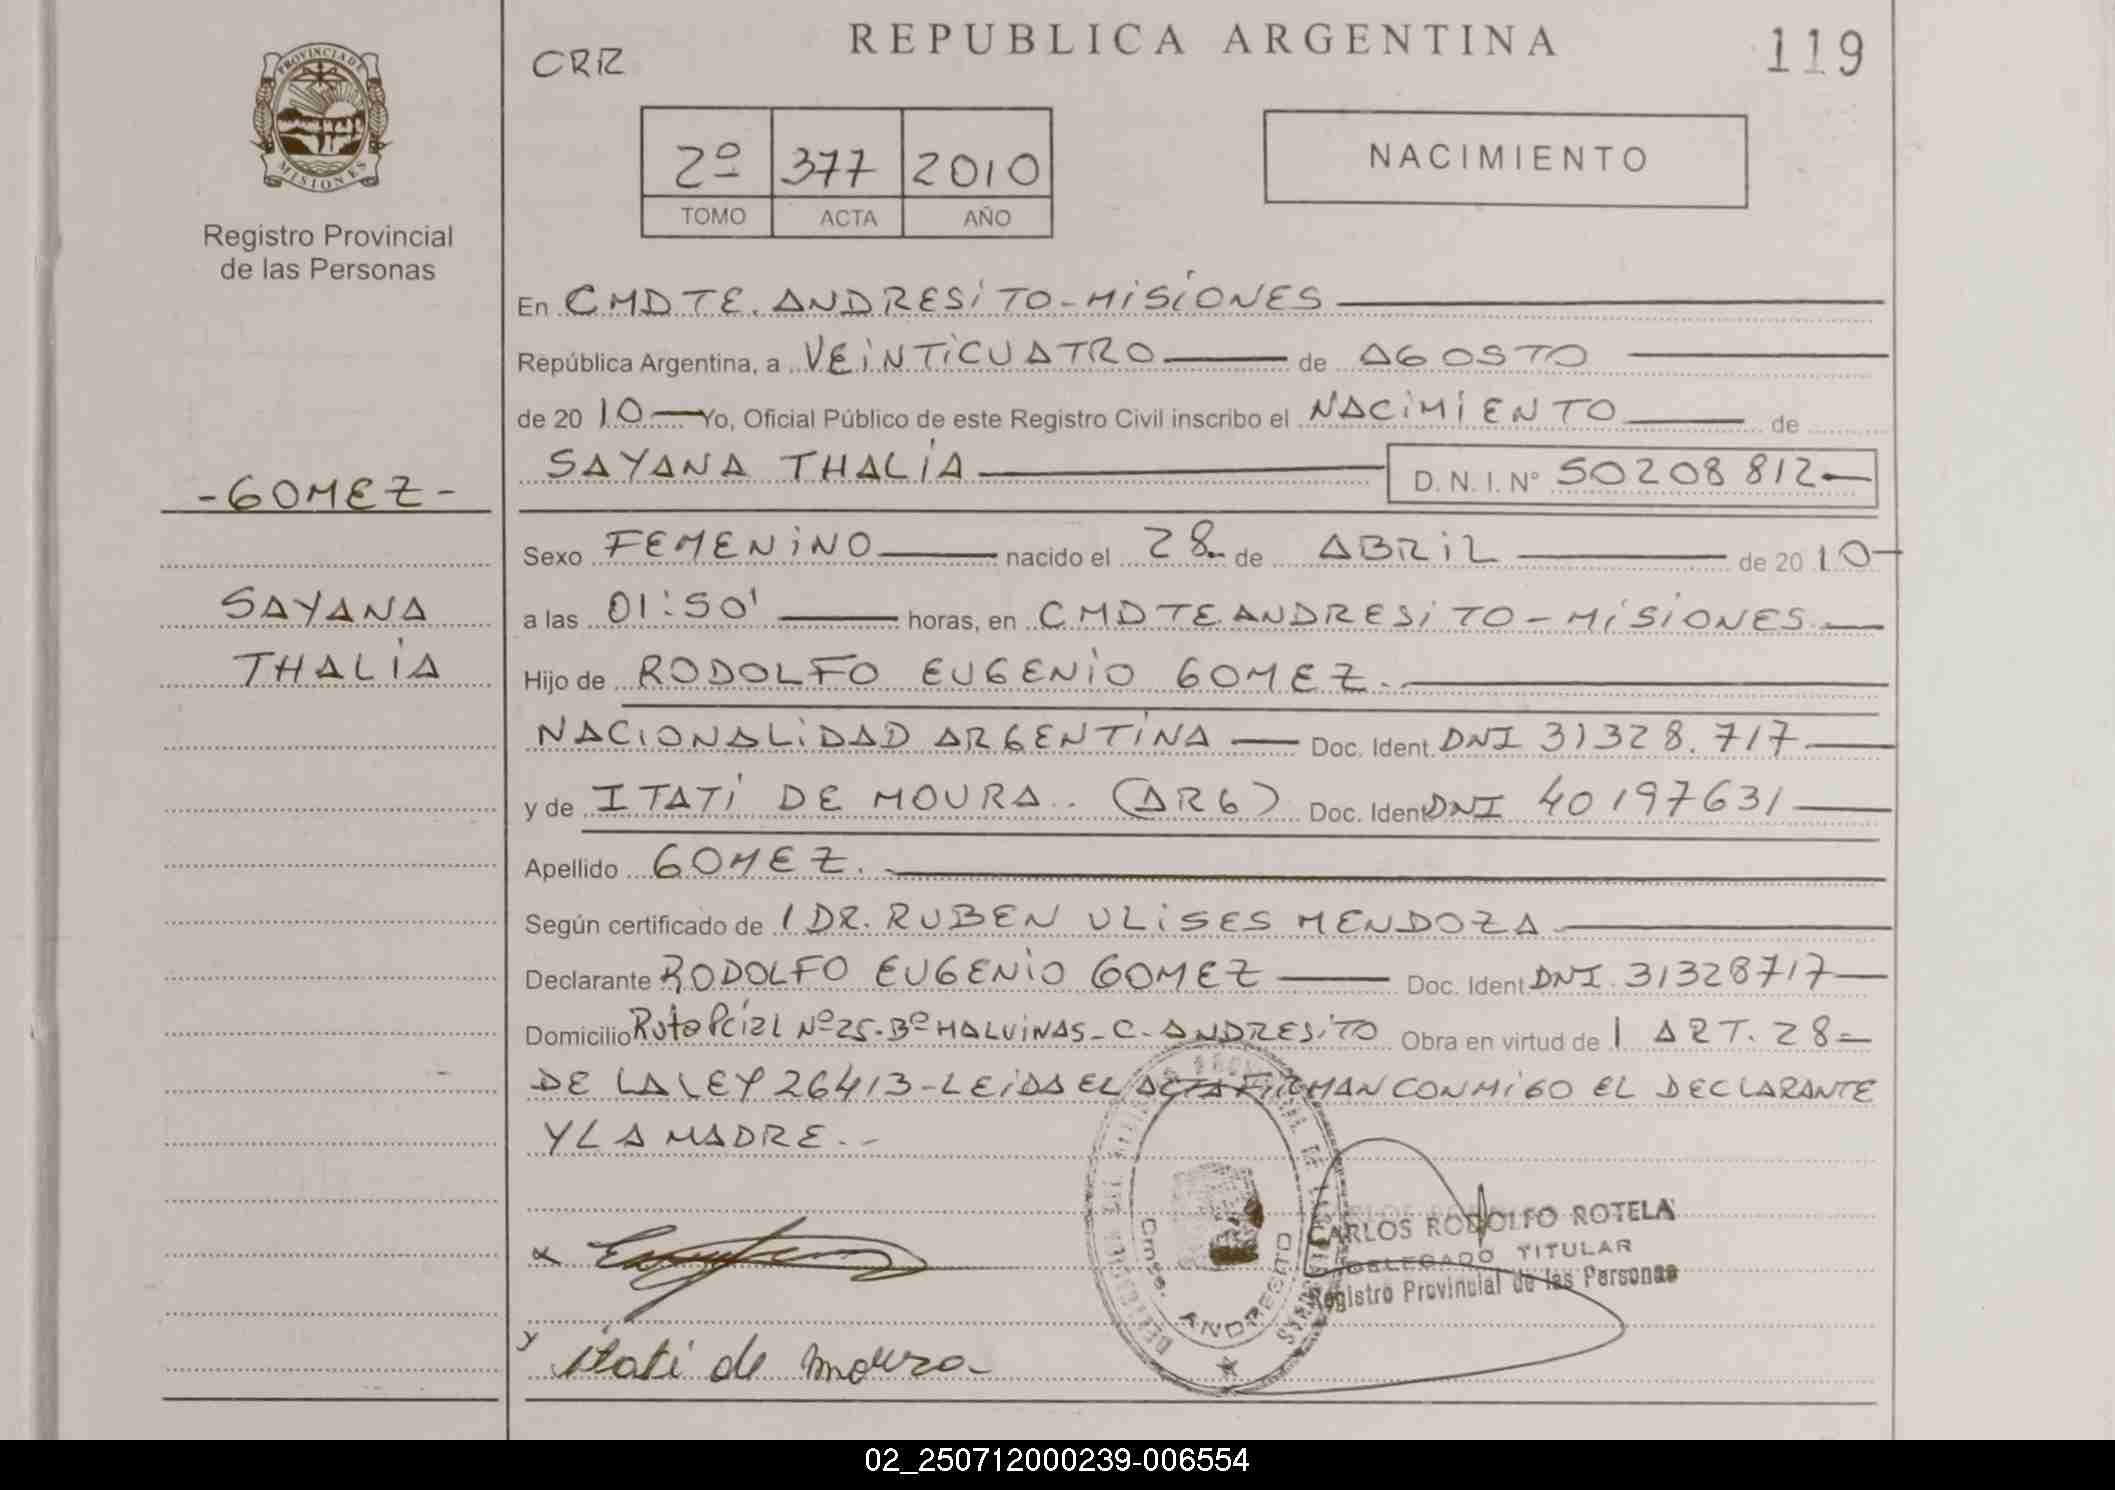 PROVINCIA DE
MISIONES
Registro Provincial
de las Personas
-GOMEZ-
SAYANA
THALIA
CRR
REPUBLICA ARGENTINA
119
2º 377 2010
TOMO ACTA AÑO
NACIMIENTO
En CMDTE. ANDRESITO-MISIONES
República Argentina, a VEINTICUATRO de AGOSTO
de 2010 Yo, Oficial Público de este Registro Civil inscribo el NACIMIENTO de
SAYANA THALIA D. N. I. Nº 50208812
Sexo FEMENINO nacido el 28 de ABRIL de 2010
a las 01:50' horas, en CMDTE ANDRESITO-MISIONES
Hijo de RODOLFO EUGENIO GOMEZ.
NACIONALIDAD ARGENTINA Doc. Ident. DNI 31328.717
y de ITATI DE MOURA.. (ARG) Doc. Ident DNI 40197631
Apellido GOMEZ.
Según certificado de / DR. RUBEN ULISES MENDOZA
Declarante RODOLFO EUGENIO GOMEZ Doc. Ident DNI. 31328717
Domicilio Ruta Pcial Nº25-Bº MALVINAS-C-ANDRESITO Obra en virtud de l ART. 28-
DE LA LEY 26413-LEIDA EL ACTA FIRMAN CONMIGO EL DECLARANTE
Y LA MADRE.-
CARLOS RODOLFO ROTELA
DELEGADO TITULAR
Registro Provincial de las Personas
Cmde. ANDRESITO
y Itati de moura-
02_250712000239-006554